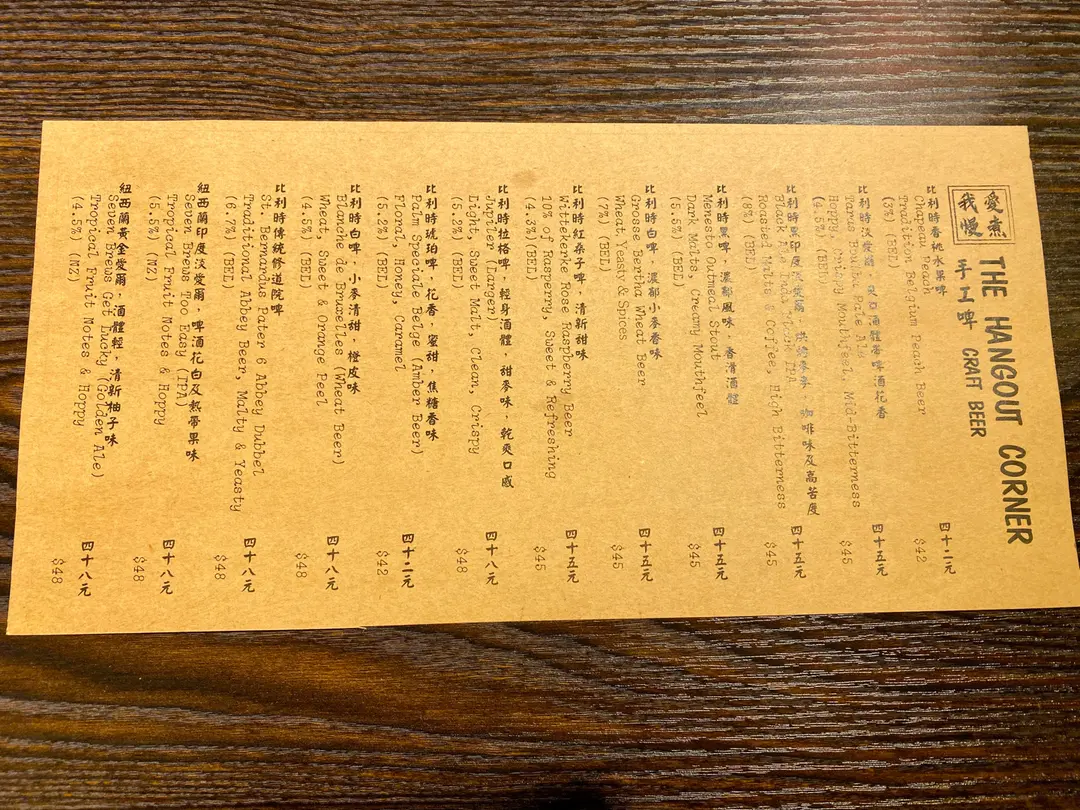 愛煮
我慢
THE HANGOUT CORNER
手工啤 CRAFT BEER
比利時香桃水果啤 四十二元
Chapeau Peach $42
Tradition Belgium Peach Beer
(3%) (BEL)
比利時淡愛爾，果口酒體帶啤酒花香 四十五元
Taras Boulba Pale Ale $45
Hoppy, Fruity Mouthfeel, Mid-Bitterness
(4.5%) (BEL)
比利時黑印度淡愛爾，烘焙麥芽 咖啡味及高苦度 四十五元
Black Ale IPA $45
Roasted Malts & Coffee, High Bitterness
(8%) (BEL)
比利時黑啤，濃郁風味，香滑酒體 四十五元
Menesto Oatmeal Stout $45
Dark Malts, Creamy Mouthfeel
(5.5%) (BEL)
比利時白啤，濃郁小麥香味 四十五元
Grosse Bertha Wheat Beer $45
Wheat, Yeast & Spices
(7%) (BEL)
比利時紅桑子啤，清新甜味 四十五元
Wittekerke Rose Raspberry Beer $45
10% of Raspberry, Sweet & Refreshing
(4.3%) (BEL)
比利時拉格啤，輕身酒體，甜麥味，乾爽口感 四十八元
Jupiler Larger) $48
Light, Sweet Malt, Clean, Crispy
(5.2%) (BEL)
比利時琥珀啤，花香，蜜甜，焦糖香味 四十二元
Palm Speciale Belge (Amber Beer) $42
Floral, Honey, Caramel
(5.2%) (BEL)
比利時白啤，小麥清甜，橙皮味 四十八元
Blanche de Bruxelles (Wheat Beer) $48
Wheat, Sweet & Orange Peel
(4.5%) (BEL)
比利時傳統修道院啤 四十八元
St. Bernardus Pater 6 Abbey Dubbel $48
Traditional Abbey Beer, Malty & Yeasty
(6.7%) (BEL)
紐西蘭印度淡愛爾，啤酒花白及熱帶果味 四十八元
Seven Brews Too Easy (IPA) $48
Tropical Fruit Notes & Hoppy
(5.5%) (NZ)
紐西蘭黃金愛爾，酒體輕，清新柚子味 四十八元
Seven Brews Get Lucky (Golden Ale) $48
Tropical Fruit Notes & Hoppy
(4.5%) (NZ)